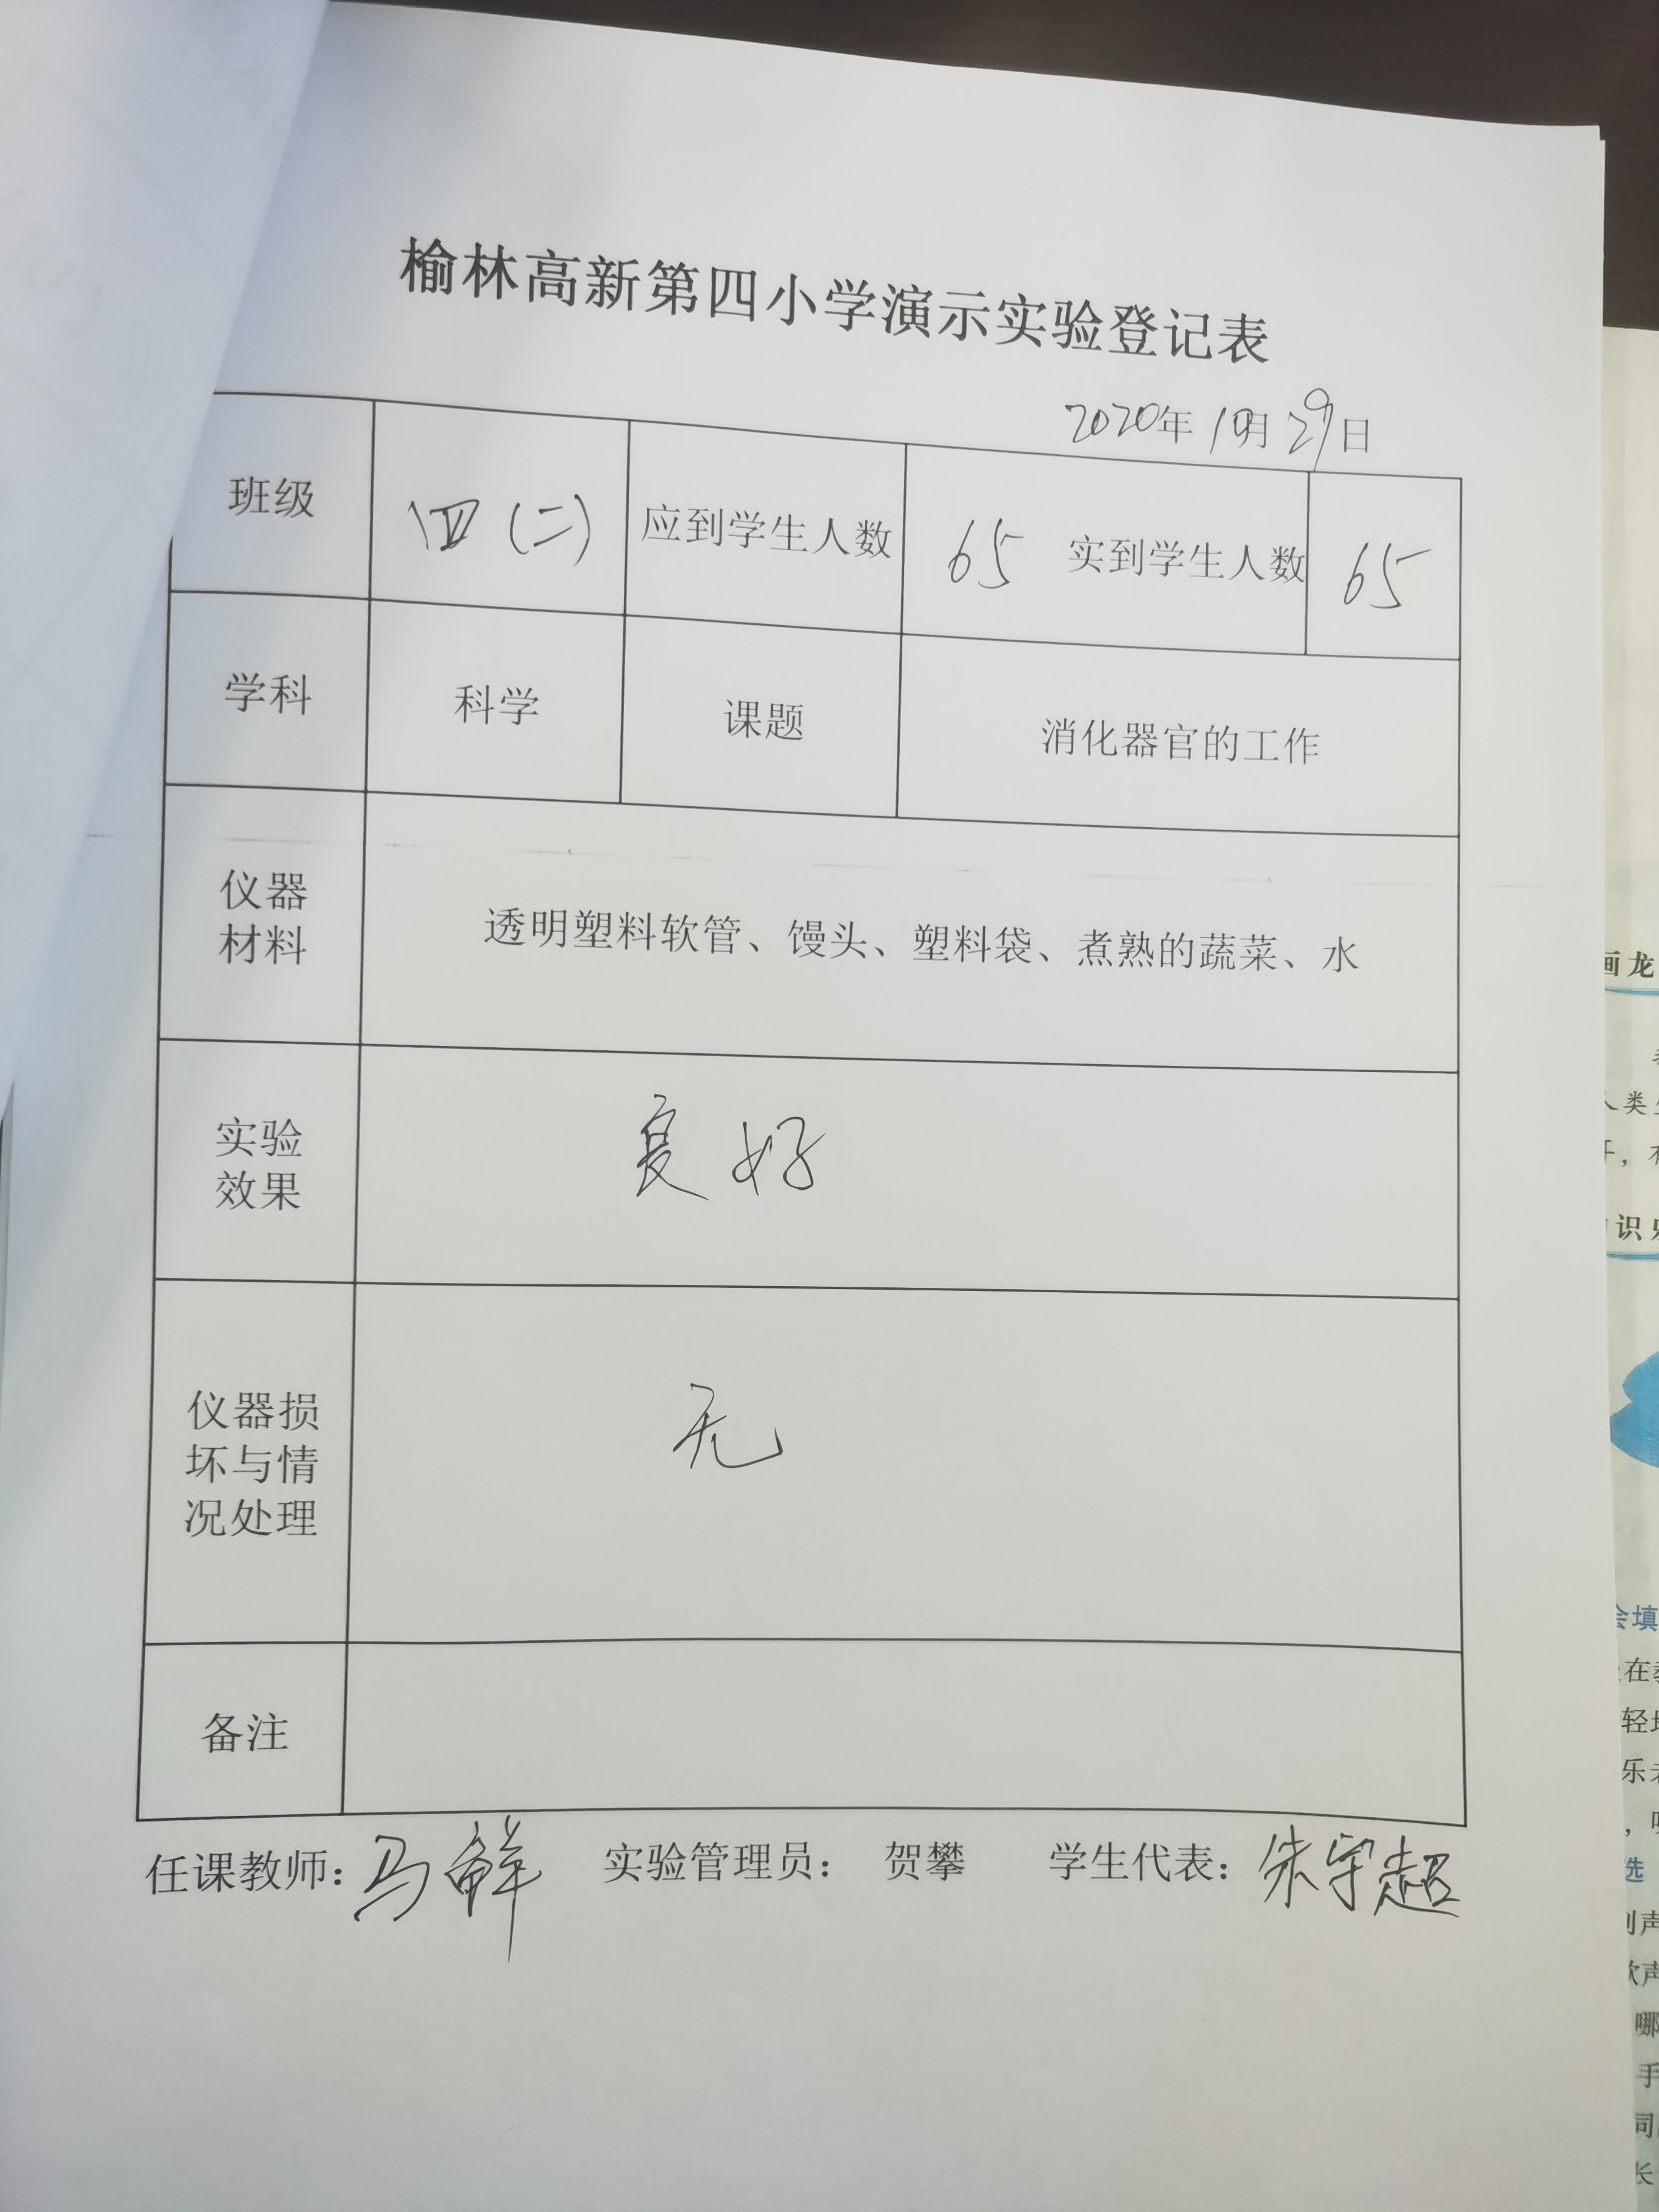 榆林高新第四小学演示实验登记表
2020年10月29日
班级 四（二） 应到学生人数 65 实到学生人数 65
学科 科学 课题 消化器官的工作
仪器
材料
透明塑料软管、馒头、塑料袋、煮熟的蔬菜、水
实验
效果
良好
仪器损
坏与情
况处理
无
备注
任课教师：马鲜 实验管理员： 贺攀 学生代表：朱宇超
画龙
人类
，有
识
会填
在
轻
乐
，
选
声
声
哪
手
同
长